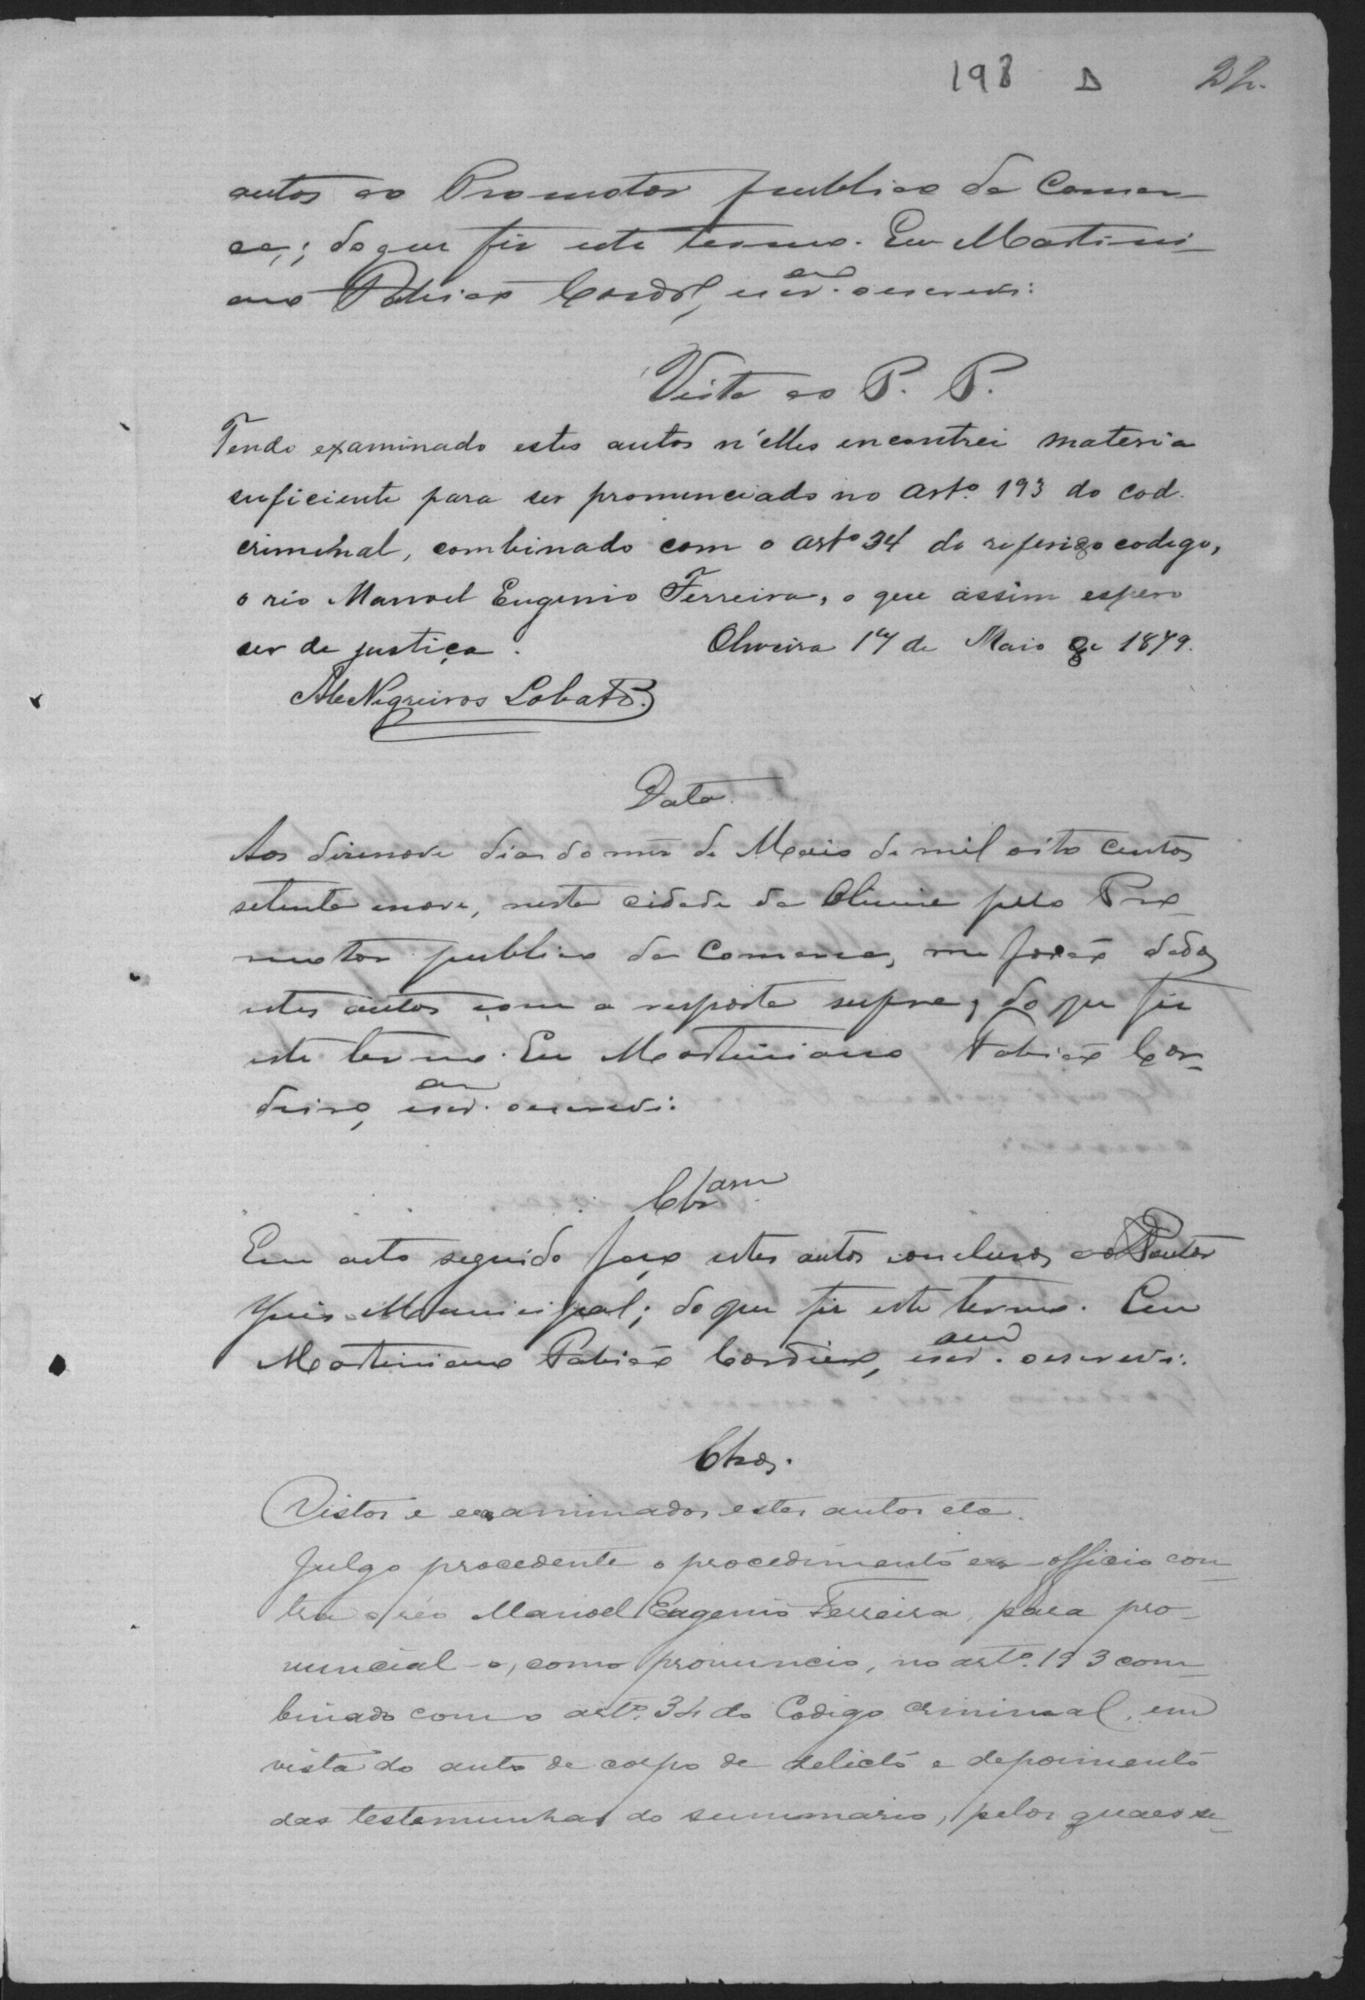 198 D 22.
autos ao Promotor publico da Comar-
ca,; do que fiz este termo. Eu Martini-
ano Tobias Cordº, escr.am o escrevi:
Vista ao P. P.
Tendo examinado estes autos n'elles encontrei materia
suficiente para ser pronunciado no artº 193 do cod.
criminal, combinado com o artº 34 do referido codigo,
o réo Manoel Eugenio Ferreira, o que assim espero
ser de justiça. Oliveira 17 de Maio de 1879.
Negreiros Lobato.
Data.
Aos desenove dias do mes de Maio de mil oito centos
setenta enove, nesta cidade da Oliveira pelo Pro-
motor publico da Comarca, me forão dados
estes autos com a resposta supra, do que fiz
este termo. Eu Martiniano Tobias Cor-
deiro, escr.am o escrevi:
Clsam
Em acto seguido faço estes autos conclusos ao Doutor
Juis Municipal; do que fiz este termo. Eu
Martiniano Tobias Cordeiro, escr.am o escrevi:
Clsos.
Vistos e examinados estes autos etc.
Julgo procedente o procedimento ex-officio con-
tra o réo Manoel Eugenio Ferreira, para pro-
nuncial-o, como pronuncio, no artº. 193 com-
binado com o artº. 34 do Codigo Criminal, em
vista do auto de corpo de delicto e depoimento
das testemunhas do summario, pelos quaes se-